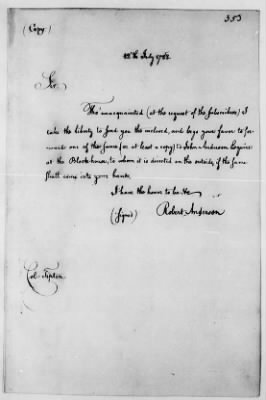 353
(Copy)
12th July 1788.
Sir
Tho' unacquainted (at the request of the subscribers) I
take the liberty to send you the inclosed, and begs your favor to for-
wards one of the same (or at least a copy) to John Anderson Esquire
at the Blockhouse, to whom it is directed on the outside, if the same
shall come into your hands.
I have the honor to be &c
(Signed) Robert Anderson
Col. Tipton